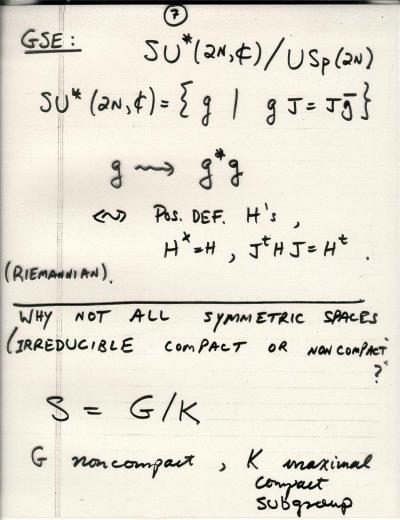 7
GSE:
SU*(2N,ℂ)/USp(2N)
SU*(2N,ℂ)={g | gJ=Jḡ}
g ⇝ g*g
↭ POS. DEF. H's,
H*=H, JᵗHJ=Hᵗ.
(RIEMANNIAN).
WHY NOT ALL SYMMETRIC SPACES
(IRREDUCIBLE COMPACT OR NONCOMPACT
?
S = G/K
G noncompact, K maximal
compact
subgroup